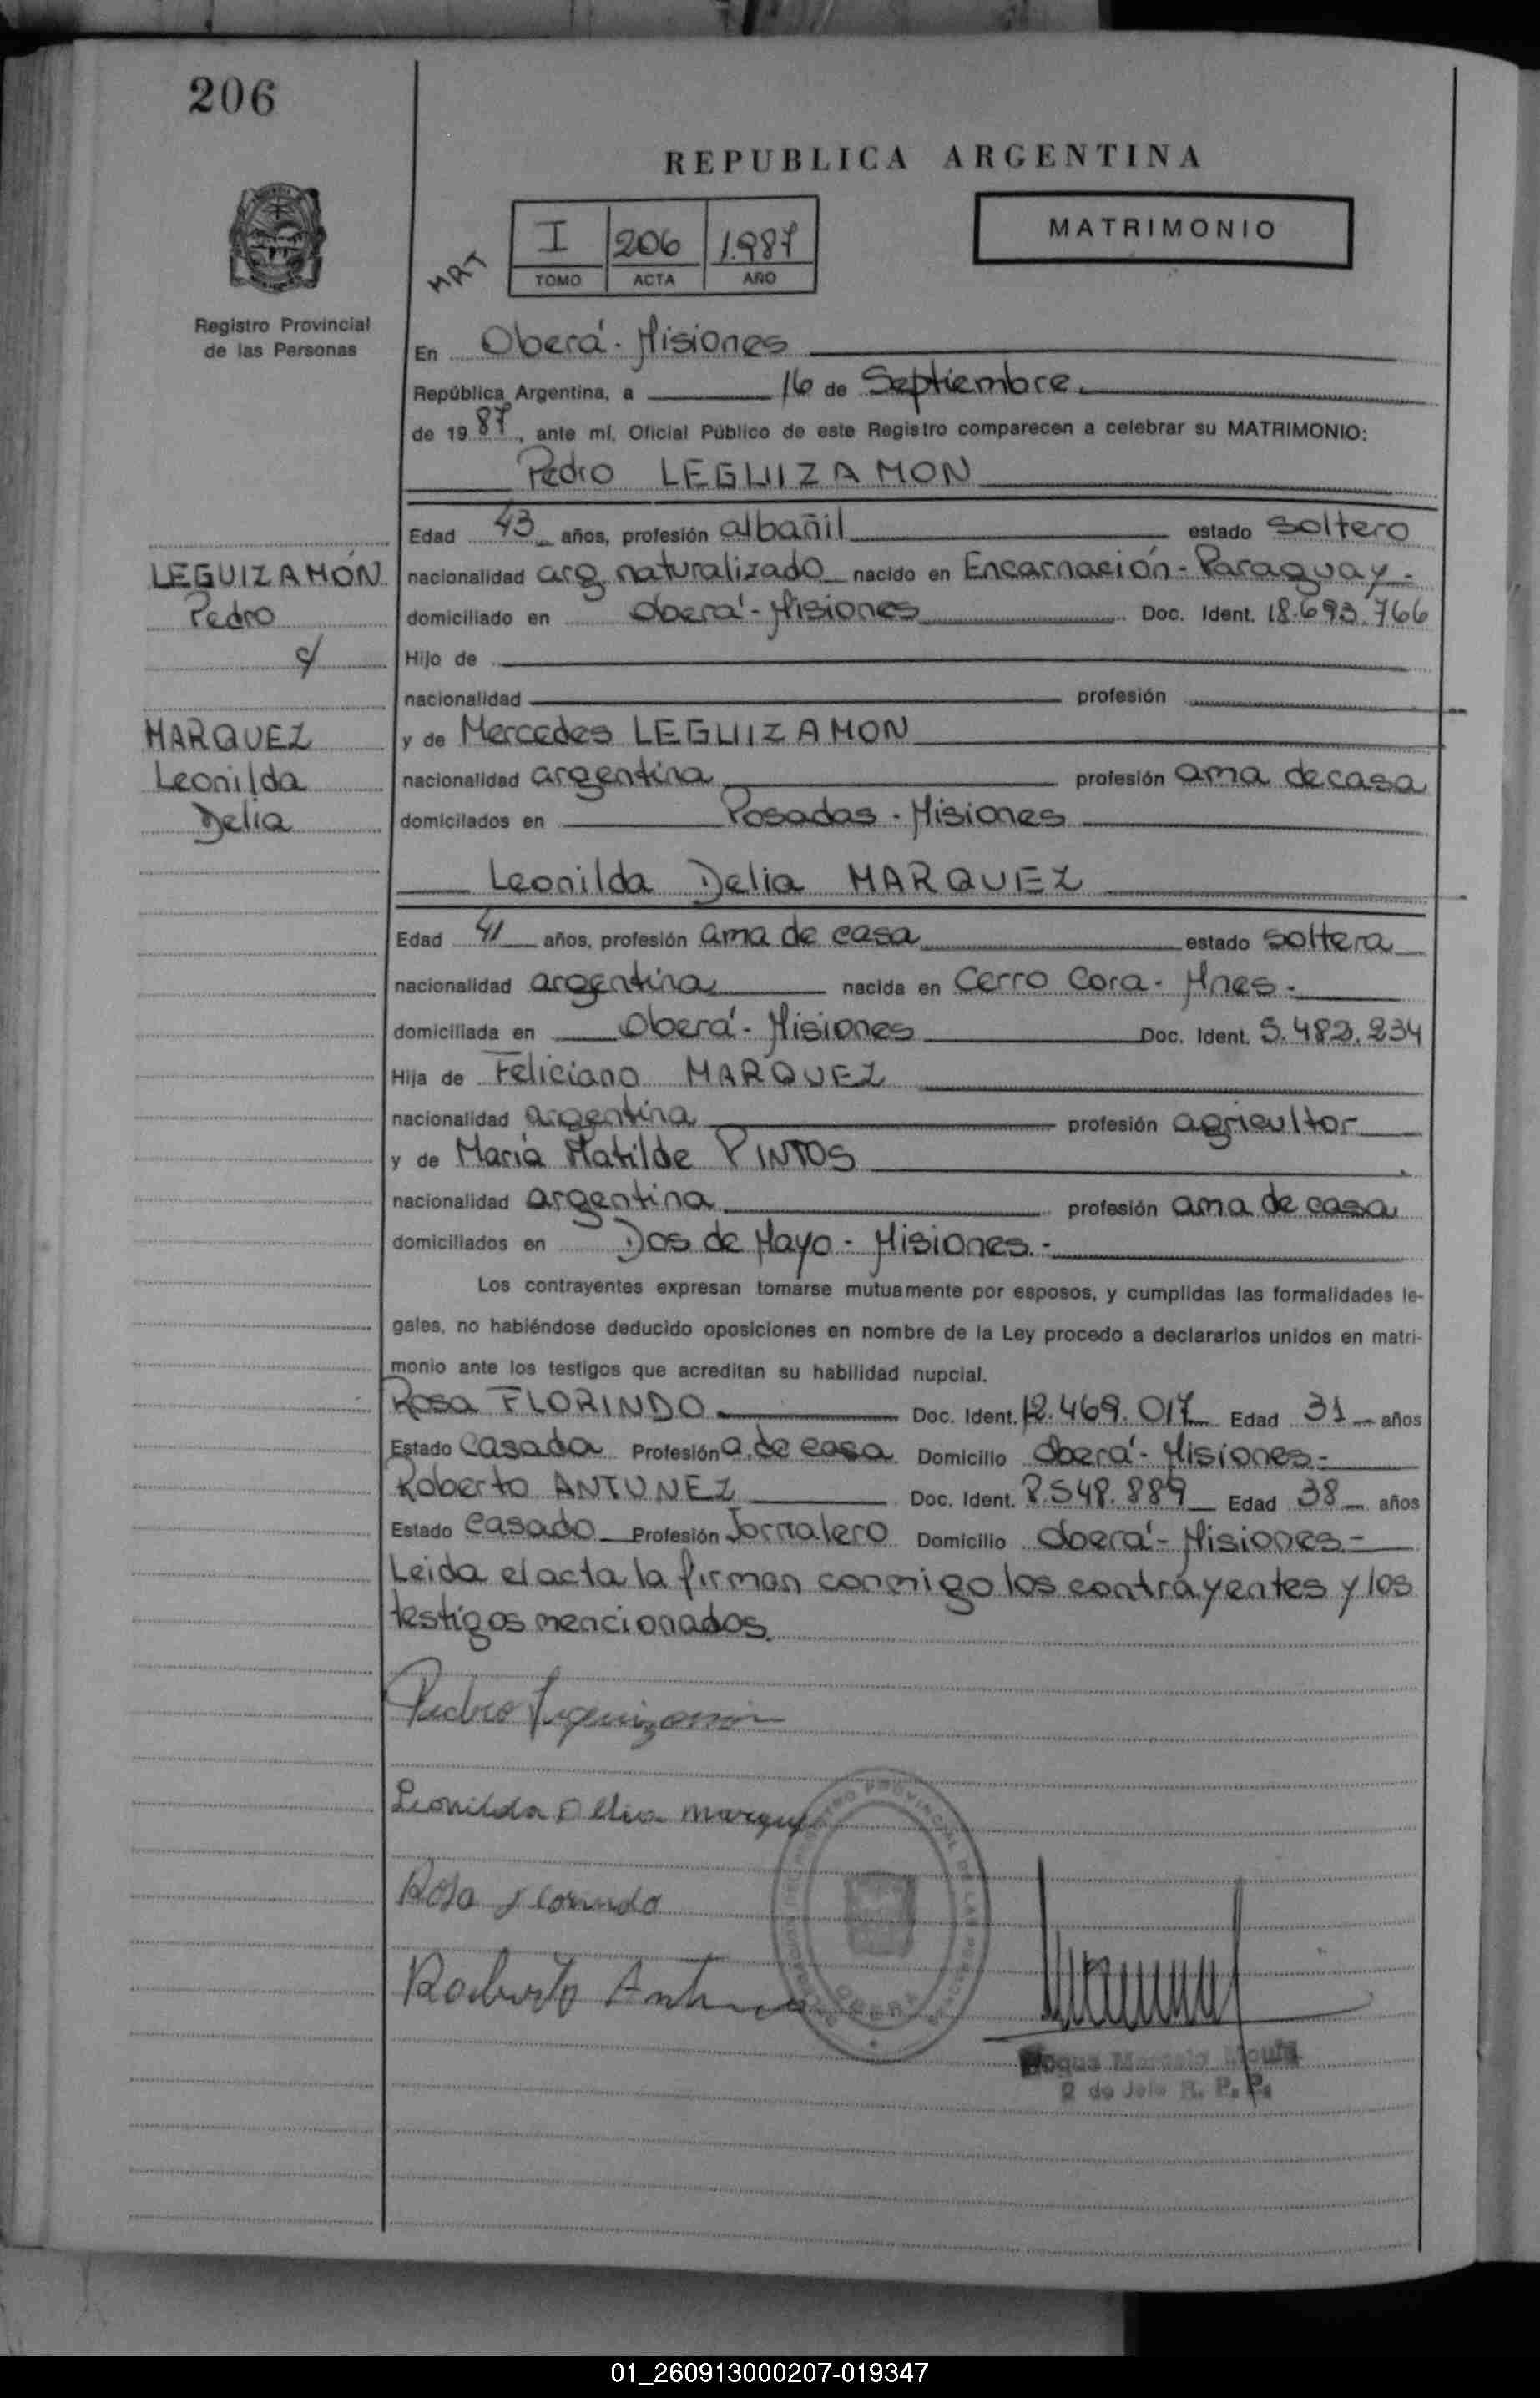 206
REPUBLICA ARGENTINA
MATRIMONIO
MAT
I 206 1.987
TOMO ACTA AÑO
Registro Provincial
de las Personas
En Oberá - Misiones
República Argentina, a 16 de Septiembre
de 19 87, ante mí, Oficial Público de este Registro comparecen a celebrar su MATRIMONIO:
Pedro LEGUIZAMON
LEGUIZAMÓN
Pedro
c/
MARQUEZ
Leonilda
Delia
Edad 43 años, profesión albañil estado soltero
nacionalidad arg. naturalizado nacido en Encarnación - Paraguay -
domiciliado en Oberá - Misiones Doc. Ident. 18.693.766
Hijo de
nacionalidad profesión
y de Mercedes LEGUIZAMON
nacionalidad argentina profesión ama de casa
domicilados en Posadas - Misiones
Leonilda Delia MARQUEZ
Edad 41 años, profesión ama de casa estado soltera
nacionalidad argentina nacida en Cerro Cora - Mnes -
domiciliada en Oberá - Misiones Doc. Ident. 5.482.234
Hija de Feliciano MARQUEZ
nacionalidad argentina profesión agricultor
y de María Matilde PINTOS
nacionalidad argentina profesión ama de casa
domiciliados en Dos de Mayo - Misiones -
Los contrayentes expresan tomarse mutuamente por esposos, y cumplidas las formalidades le-
gales, no habiéndose deducido oposiciones en nombre de la Ley procedo a declararlos unidos en matri-
monio ante los testigos que acreditan su habilidad nupcial.
Rosa FLORINDO Doc. Ident. 12.469.017 Edad 31 años
Estado Casada Profesión a. de casa Domicilio Oberá - Misiones -
Roberto ANTUNEZ Doc. Ident. 8.548.889 Edad 38 años
Estado casado Profesión Jornalero Domicilio Oberá - Misiones -
Leida el acta la firman conmigo los contrayentes y los
testigos mencionados.
Pedro Leguizamón
Leonilda Delia Marquez
Rosa Florindo
Roberto Antunez
REGISTRO PROVINCIAL DE LAS PERSONAS
OBERA
Roque Marcelo
2 do Jefe R. P. P.
01_260913000207-019347